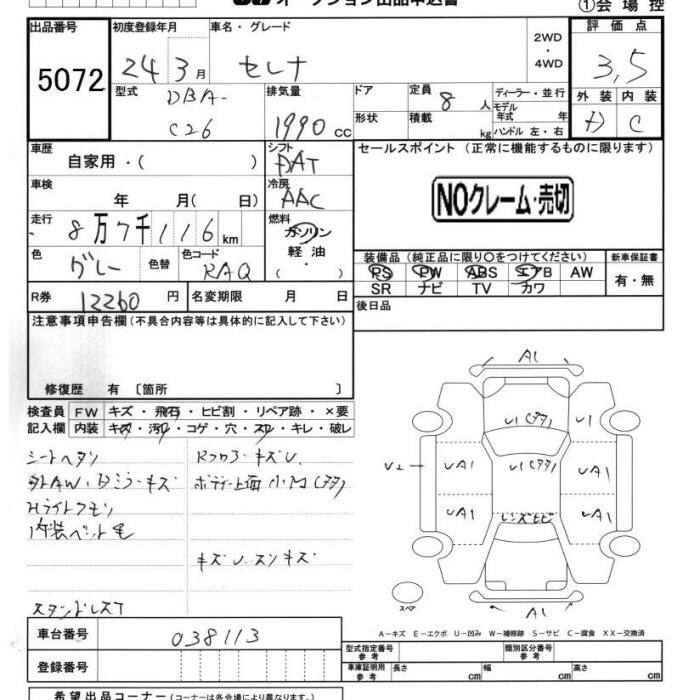 オークション出品申込書
①会場控
出品番号
初度登録年月
車名・グレード
2WD
・
4WD
評価点
5072
24 3月
セレナ
3,5
型式
DBA-
C26
排気量
1990 cc
ドア
形状
定員 8 人
積載 kg
ディーラー・並行
モデル年式 年
ハンドル 左・右
外装
内装
D
C
車歴
自家用・( )
シフト
DAT
セールスポイント(正常に機能するものに限ります)
車検
年 月( 日)
冷房
AAC
NOクレーム・売切
走行
8万7千116km
燃料
ガソリン
軽油
( )
色
グレー
色替
色コード
RAQ
装備品(純正品に限り○をつけてください)
新車保証書
PS PW ABS エアB AW
有・無
SR ナビ TV カワ
R券 12260 円
名変期限 月 日
後日品
注意事項申告欄(不具合内容等は具体的に記入して下さい)
修復歴 有 〔箇所 〕
検査員 FW キズ・飛石・ヒビ割・リペア跡・×要
記入欄 内装 キズ・汚レ・コゲ・穴・スレ・キレ・破レ
シートヘタリ
RフロアキズU.
外AW.Dミラーキズ
ボディー上面小凹(タタ)
Hライトクモリ
内装ペット毛
キズU.スンキズ
スタンドレスT
A1
U1(タタ)
U1
U2
UA1
U1(タタ)
UA1
UA1
UA1
レンズヒビ
A1
スペア
A-キズ E-エクボ U-凹み W-補修跡 S-サビ C-腐食 XX-交換済
車台番号 038113
型式指定番号
参考
類別区分番号
参考
登録番号
車庫証明用
参考
長さ cm
幅 cm
高さ cm
希望出品コーナー(コーナーは各会場により異なります。)